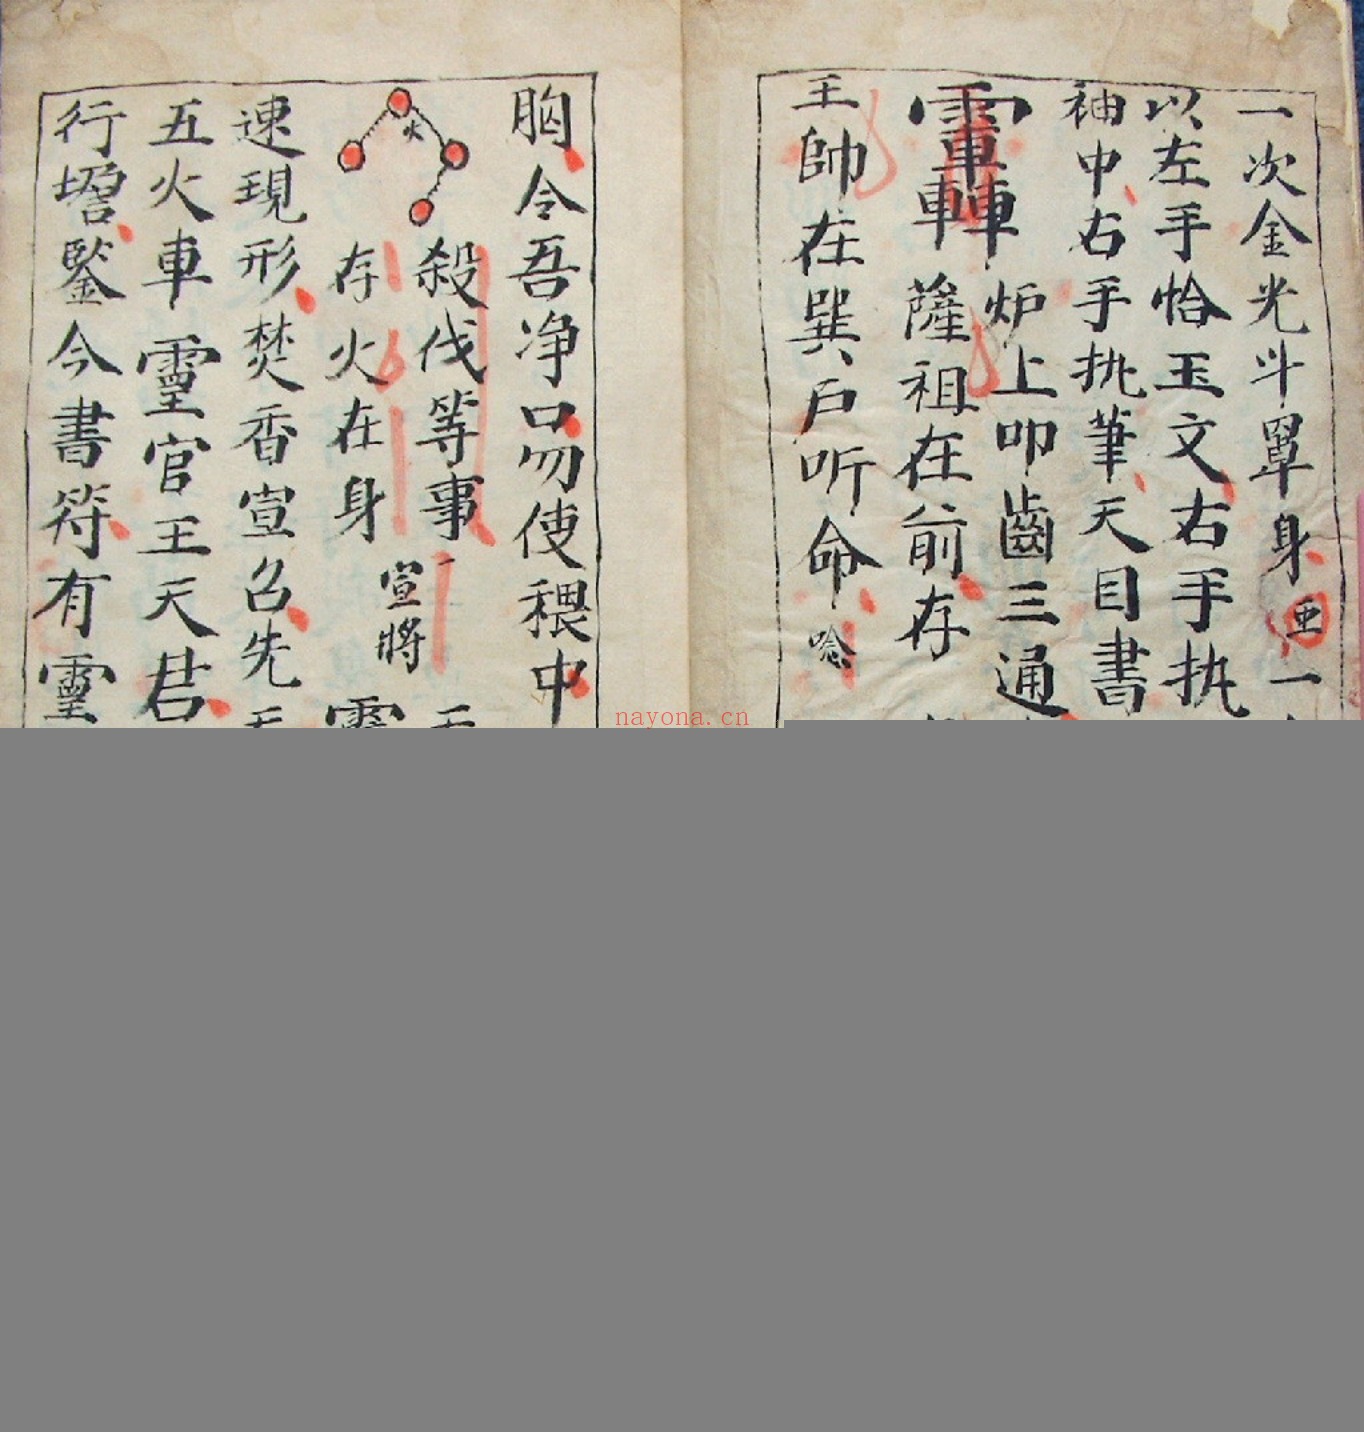 一次金光斗罩身 亜 一
以左手恰玉文右手执
袖中右手执筆天目書
炉上叩齒三通
薩祖在前存
王帥在巽戶听命 唸
胸令吾净口勿使穢中
殺伐等事一
火
存火在身 宣將
速現形焚香宣召先天
五火車靈官王天君
行壇鑒今書符有靈
nayona.cn